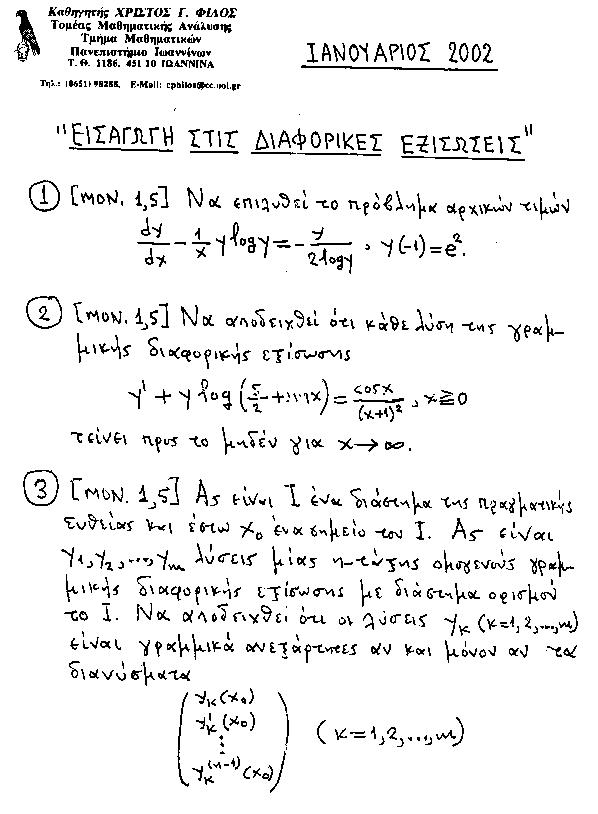 Καθηγητής ΧΡΙΣΤΟΣ Γ. ΦΙΛΟΣ
Τομέας Μαθηματικής Ανάλυσης
Τμήμα Μαθηματικών
Πανεπιστήμιο Ιωαννίνων
Τ. Θ. 1186, 451 10 ΙΩΑΝΝΙΝΑ
Τηλ.: (0651) 98288, E-Mail: cphilos@cc.uoi.gr
ΙΑΝΟΥΑΡΙΟΣ 2002
"ΕΙΣΑΓΩΓΗ ΣΤΙΣ ΔΙΑΦΟΡΙΚΕΣ ΕΞΙΣΩΣΕΙΣ"
① [ΜΟΝ. 1,5] Να επιλυθεί το πρόβλημα αρχικών τιμών
dy/dx - 1/x y log y = - y/(2 log y), y(-1) = e².
② [ΜΟΝ. 1,5] Να αποδειχθεί ότι κάθε λύση της γραμ-
μικής διαφορικής εξίσωσης
y' + y log(5/2 + sin x) = cos x/(x+1)², x ≧ 0
τείνει προς το μηδέν για x → ∞.
③ [ΜΟΝ. 1,5] Ας είναι I ένα διάστημα της πραγματικής
ευθείας και έστω x₀ ένα σημείο του I. Ας είναι
y₁, y₂, ..., yₘ λύσεις μίας n-τάξης ομογενούς γραμ-
μικής διαφορικής εξίσωσης με διάστημα ορισμού
το I. Να αποδειχθεί ότι οι λύσεις yₖ (k=1,2,...,m)
είναι γραμμικά ανεξάρτητες αν και μόνον αν τα
διανύσματα
yₖ(x₀)
y'ₖ(x₀)
⋮
yₖ⁽ⁿ⁻¹⁾(x₀)
(k=1,2,...,m)